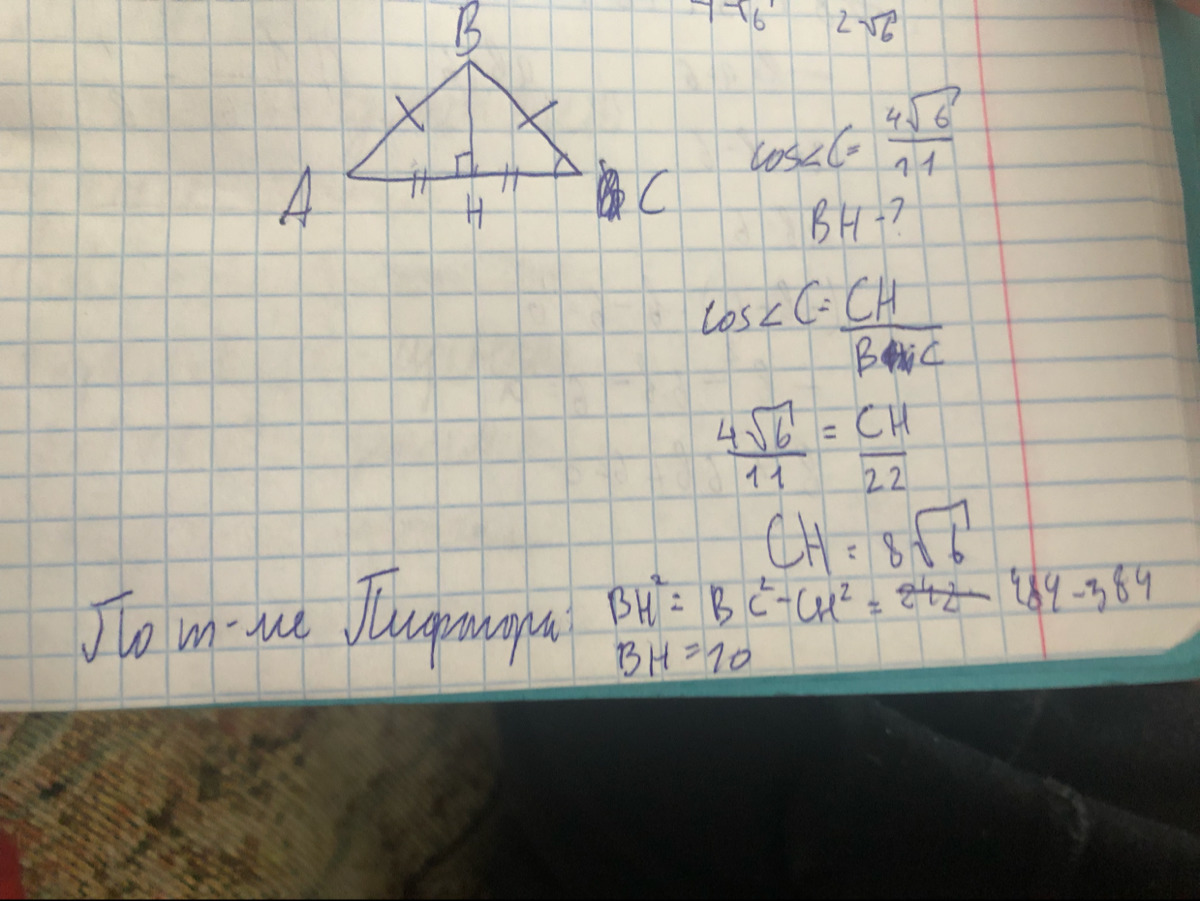 2√6
B
cos∠C = 4√6/11
A H C
BH - ?
cos∠C = CH/BC
4√6/11 = CH/22
CH = 8√6
По т-ме Пифагора: BH² = BC² - CH² = 484 - 384
BH = 10